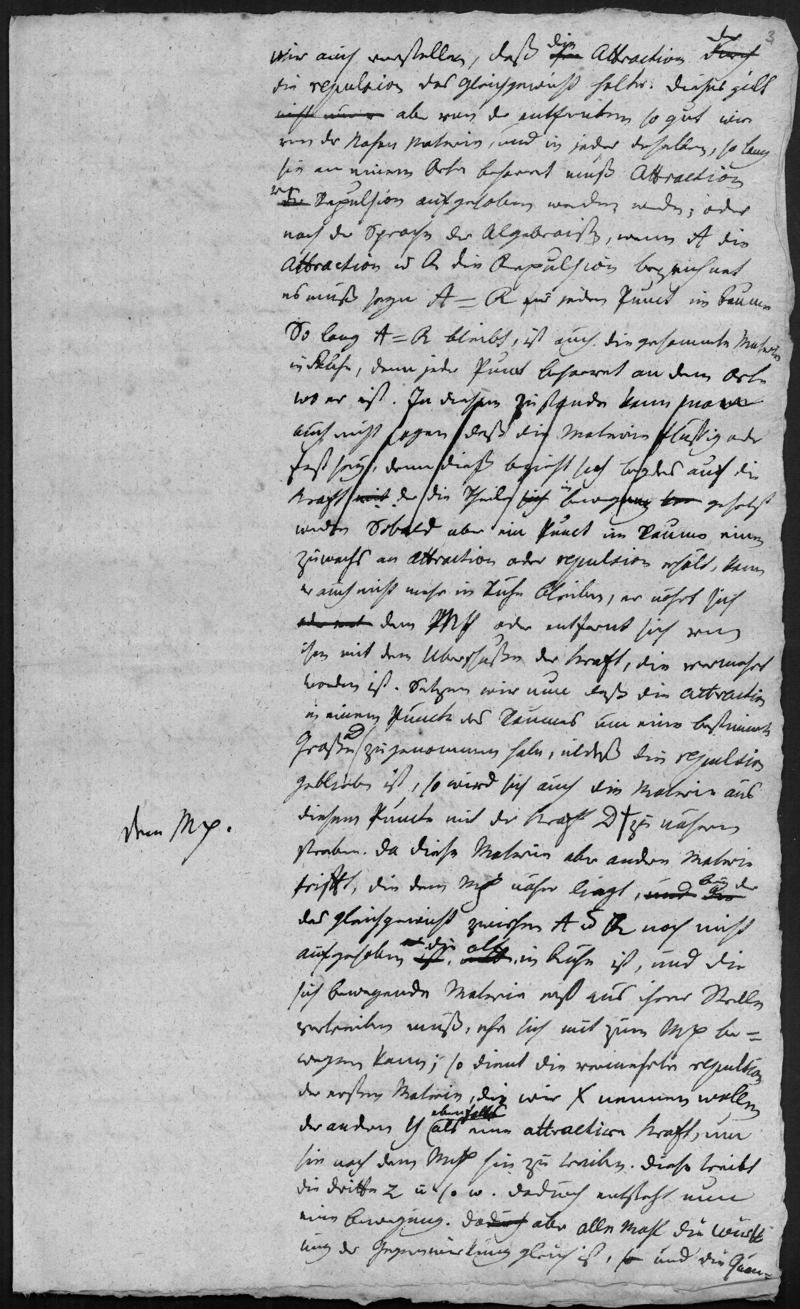 3
wir auch vorstellen, daß die Attraction der
die repulsion das Gleichgewicht halte. Dieses gilt
aber von der entfernten so gut wie
von der nahen Materie, und in jeder derselben, so lang
sie an einem Orte beharret muß Attraction
Repulsion aufgehoben werden; oder
nach der Sprache der Algebraist, wenn A die
Attraction u R die Repulsion bezeichnet
es muß seyn A = R für jeden Punct im Raume
So lang A = R bleibt, ist auch die gesammte Materie
in Ruhe, denn jeder Punct beharret an dem Orte
wo er ist. In diesem Zustande kann man
auch nicht sagen daß die Materie flüssig oder
fest sey, denn dieß bezieht sich beydes auf die
Kraft mit der die Theile sich in bewegung gesetzt
werden Sobald aber ein Punct im Raume einen
zuwachs an attraction oder repulsion erhält, kann
er auch nicht mehr in Ruhe bleiben, er nähert sich
dem Mp oder entfernt sich von
ihm mit dem Uberschuße der Kraft, die vermehrt
worden ist. Setzen wir nun daß die attraction
in einem Puncte des Raumes um eine bestimmte
Große D zugenommen habe, indeß die repulsion
geblieben ist, so wird sich auch die Materie aus
diesem Puncte mit der Kraft D zu nähern
dem Mp.
streben. Da diese Materie aber andere Materie
trifft, die dem Mp näher liegt, bey der
das gleichgewicht zwischen A & R noch nicht
aufgehoben ist, die also in Ruhe ist, und die
sich bewegende Materie erst aus ihrer Stelle
vertreiben muß, ehe sich mit zum Mp be=
wegen kann; so dient die vermehrte repulsion
der ersten Materie, die wir X nennen wollen
der andern Y ebenfalls als eine attractive Kraft, um
sie nach dem Mp hin zu treiben. Diese treibt
die dritte Z u. s. w. dadurch entsteht nun
eine bewegung. Da aber alle Mahl die Würk
ung der Gegenwirkung gleich ist, so und die Quan=